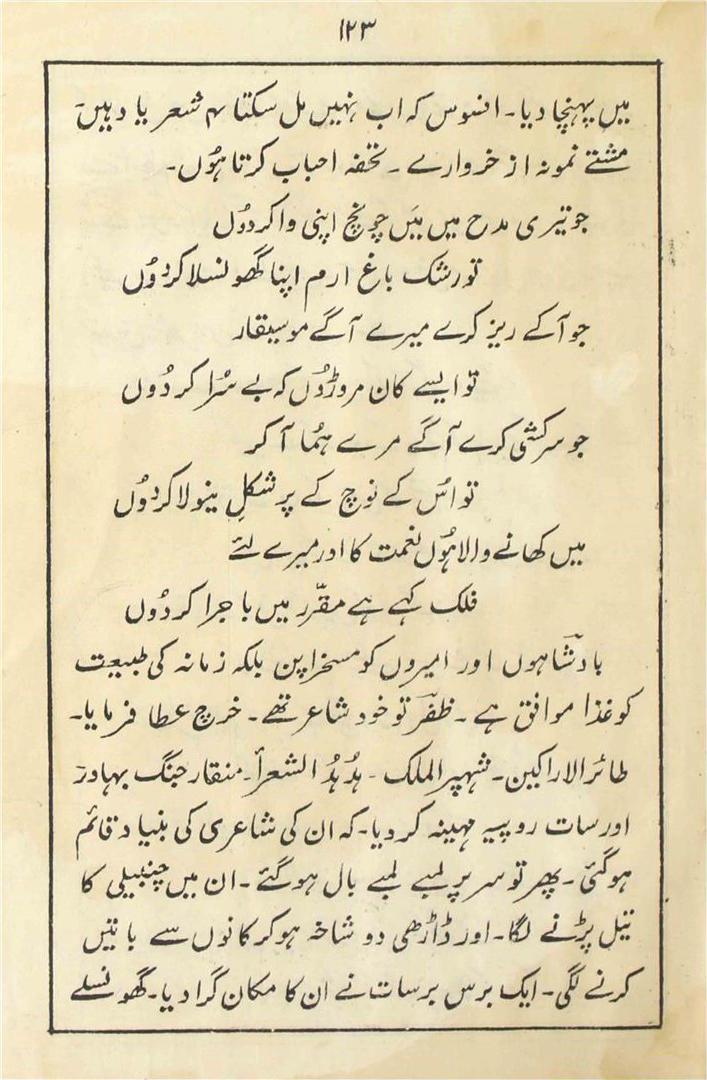 ۱۲۳
میں پہنچا دیا۔ افسوس کہ اب نہیں مل سکتا ۴ شعر یاد ہیں۔
مشتے نمونہ از خروارے ۔ تحفہ احباب کرتا ہُوں۔
جو تیری مدح میں مَیں چونچ اپنی وا کردُوں
تو رشک باغِ ارم اپنا گھونسلا کردُوں
جو آکے ریز کرے میرے آگے موسیقار
تو ایسے کان مروڑدُوں کہ بے سُرا کر دُوں
جو سرکشی کرے آگے مرے ہُما آ کر
تو اُس کے نوچ کے پر شکلِ نیولا کردُوں
میں کھانے والا ہُوں نعمت کا اور میرے لئے
فلک کہے ہے مقرّر میں باجرا کر دُوں
بادشاہوں اور امیروں کو مسخراپن بلکہ زمانہ کی طبیعت
کو غذا موافق ہے ۔ ظفرؔ تو خود شاعر تھے۔ خرچ عطا فرمایا۔
طائر الاراکین۔ شہپر الملک ۔ ہُدہُد الشعرأ۔ منقار جنگ بہادر
اور سات روپیہ مہینہ کر دیا۔ کہ ان کی شاعری کی بنیاد قائم
ہوگئی ۔ پھر تو سر پر لمبے لمبے بال ہوگئے ۔ ان میں چنبیلی کا
تیل پڑنے لگا۔ اور ڈاڑھی دو شاخہ ہوکر کانوں سے باتیں
کرنے لگی۔ ایک برس برسات نے ان کا مکان گرا دیا۔ گھونسلے